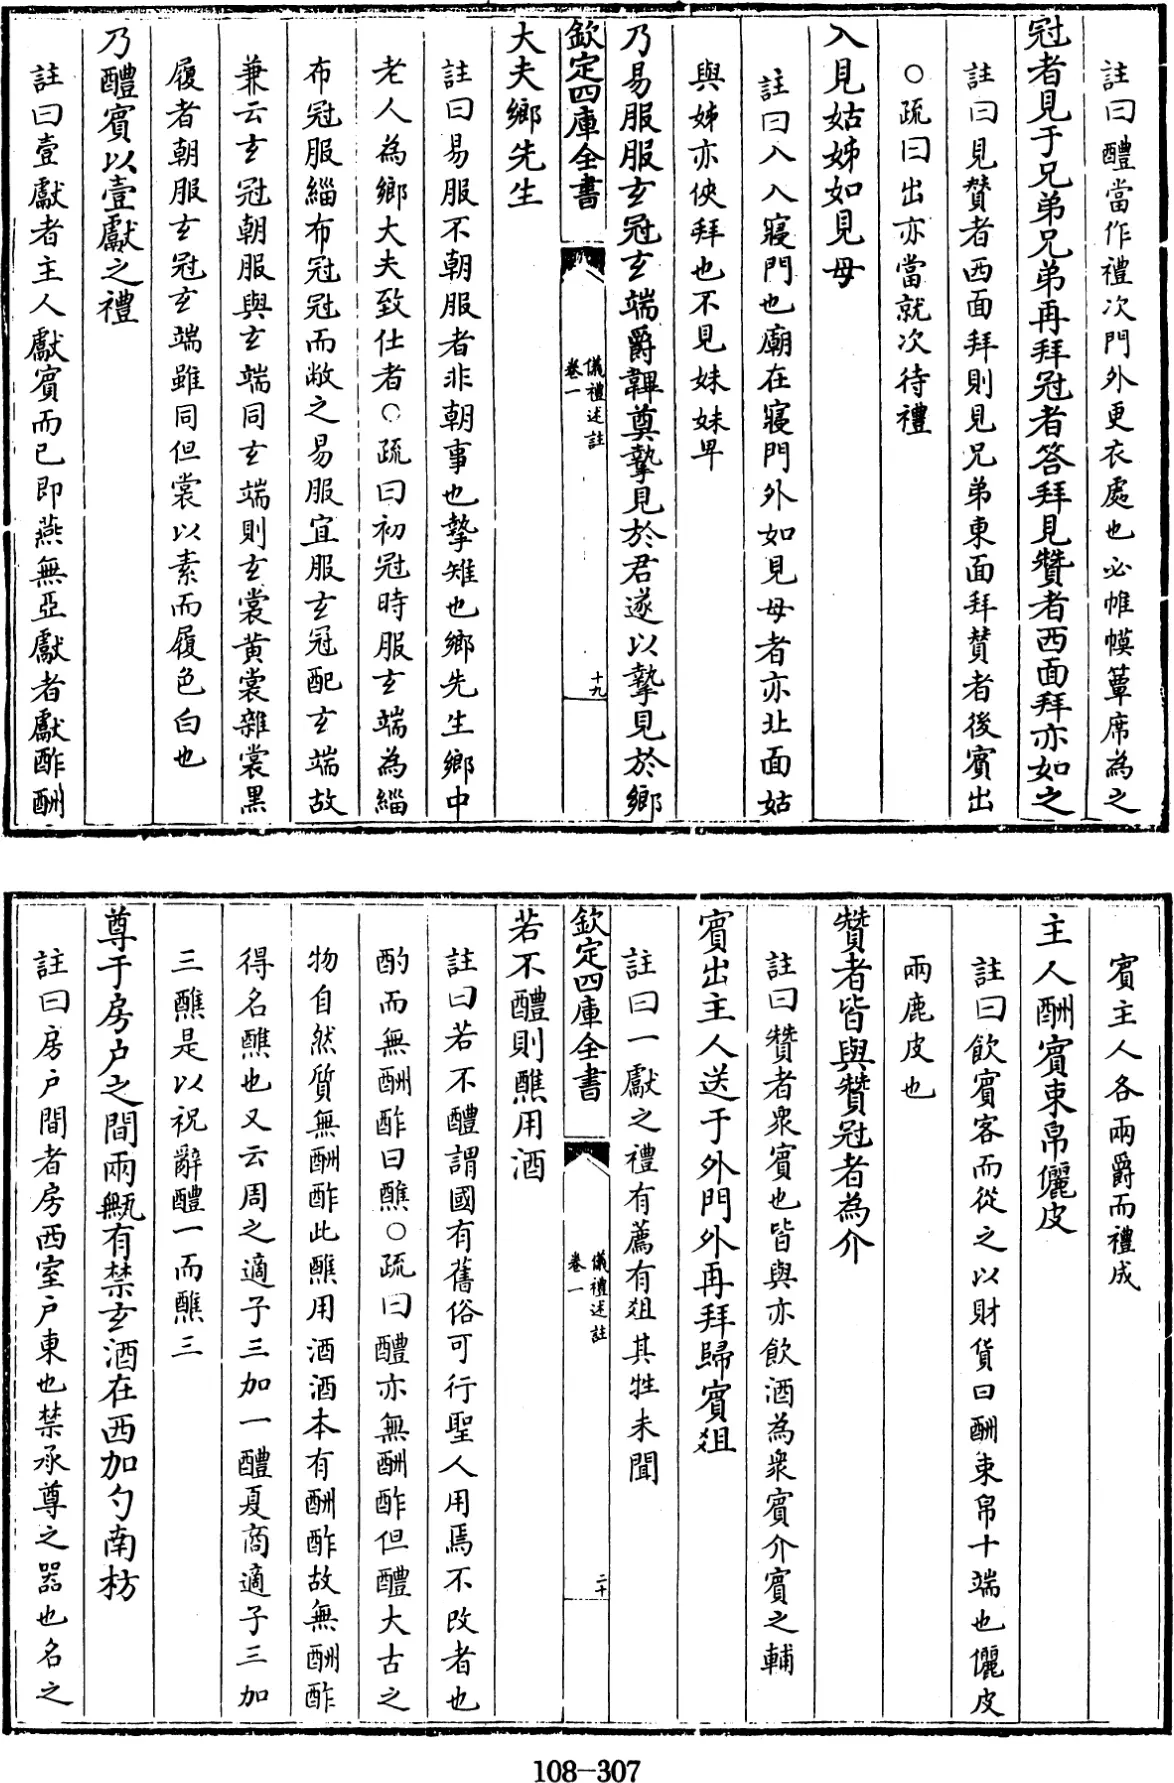 註曰醴當作禮次門外更衣處也必帷幙簟席為之
冠者見于兄弟兄弟再拜冠者答拜見贊者西面拜亦如之
註曰見贊者西面拜則見兄弟東面拜贊者後賓出
○疏曰出亦當就次待禮
入見姑姊如見母
註曰入入寢門也廟在寢門外如見母者亦北面姑
與姊亦俠拜也不見妹妹卑
乃易服服玄冠玄端爵韠奠摯見於君遂以摯見於鄉
欽定四庫全書
儀禮述註
卷一
十九
大夫鄉先生
註曰易服不朝服者非朝事也摯雉也鄉先生鄉中
老人為鄉大夫致仕者○疏曰初冠時服玄端為緇
布冠服緇布冠冠而敝之易服宜服玄冠配玄端故
兼云玄冠朝服與玄端同玄端則玄裳黄裳雜裳黑
履者朝服玄冠玄端雖同但裳以素而履色白也
乃醴賓以壹獻之禮
註曰壹獻者主人獻賓而已即燕無亞獻者獻酢酬
賓主人各兩爵而禮成
主人酬賓束帛儷皮
註曰飲賓客而從之以財貨曰酬束帛十端也儷皮
兩鹿皮也
贊者皆與贊冠者為介
註曰贊者衆賓也皆與亦飲酒為衆賓介賓之輔
賓出主人送于外門外再拜歸賓俎
註曰一獻之禮有薦有俎其牲未聞
欽定四庫全書
儀禮述註
卷一
二十
若不醴則醮用酒
註曰若不醴謂國有舊俗可行聖人用焉不改者也
酌而無酬酢曰醮○疏曰醴亦無酬酢但醴大古之
物自然質無酬酢此醮用酒酒本有酬酢故無酬酢
得名醮也又云周之適子三加一醴夏商適子三加
三醮是以祝辭醴一而醮三
尊于房户之間兩甒有禁玄酒在西加勺南枋
註曰房户間者房西室户東也禁承尊之器也名之
108-307